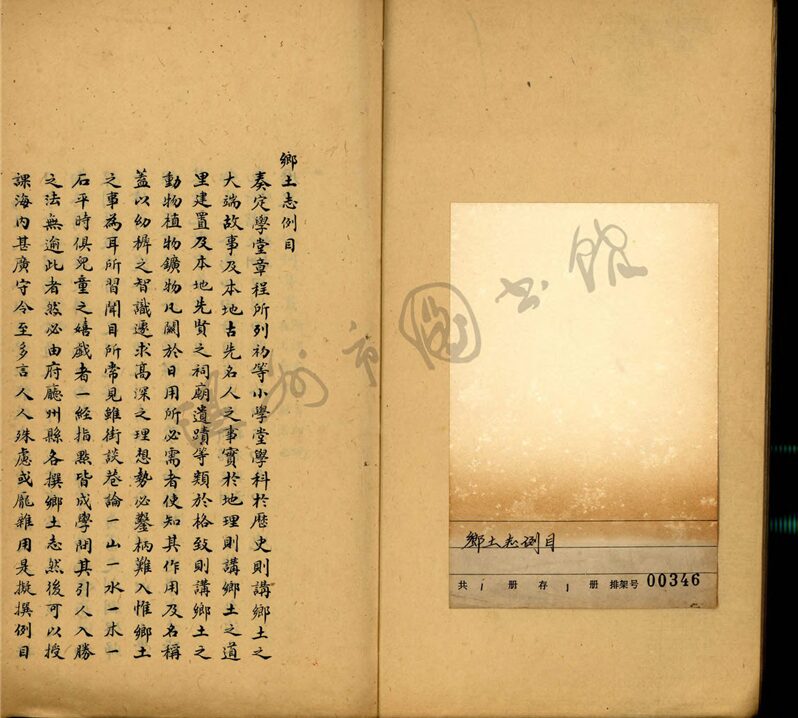 鄉土志例目
奏定學堂章程所列初等小學堂學科於歷史則講鄉土之
大端故事及本地古先名人之事實於地理則講鄉土之道
里建置及本地先賢之祠廟遺蹟等類於格致則講鄉土之
動物植物鑛物凡關於日用所必需者使知其作用及名稱
蓋以幼穉之智識遽求高深之理想勢必鑿枘難入惟鄉土
之事為耳所習聞目所常見雖街談巷論一山一水一木一
石平時俱兒童之嬉戲者一經指點皆成學問其引人入勝
之法無逾此者然必由府廳州縣各撰鄉土志然後可以授
課海內甚廣守令至多言人人殊慮或龐雜用是擬撰例目
鄉土志例目
共 1 册 存 1 册 排架号 00346
州市圖书馆